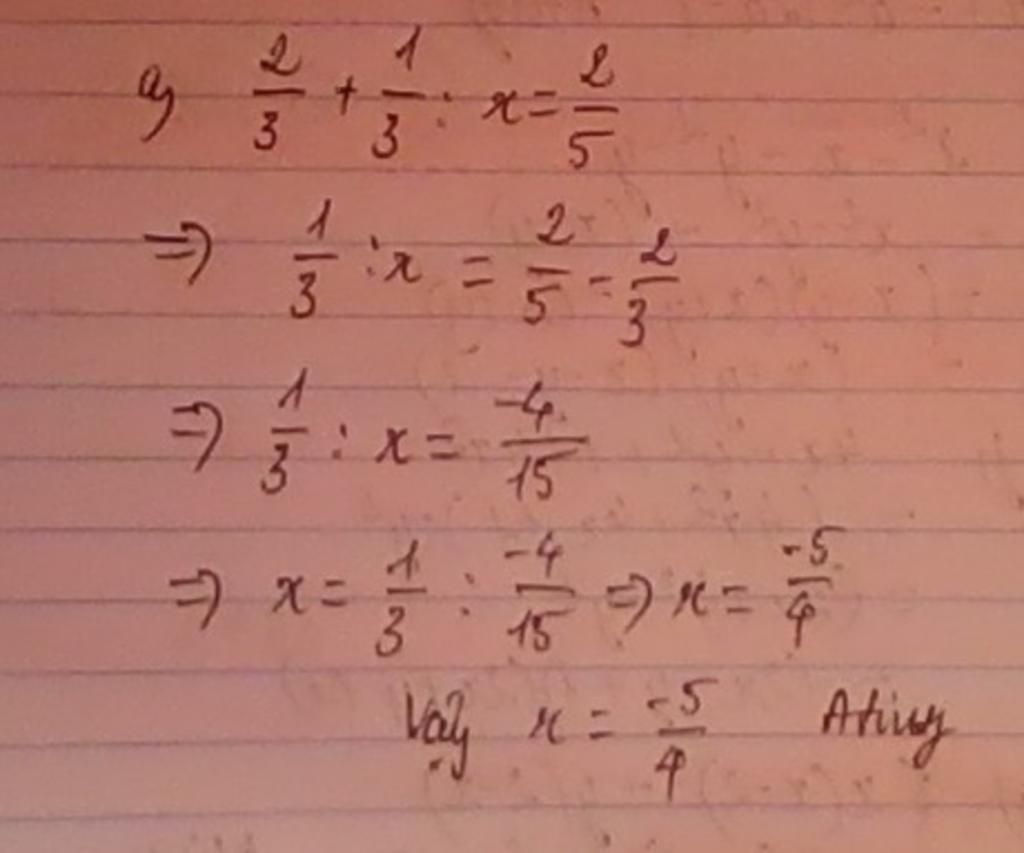 a) 2/3 + 1/3 : x = 2/5
=> 1/3 : x = 2/5 - 2/3
=> 1/3 : x = -4/15
=> x = 1/3 : -4/15 => x = -5/4
Vậy x = -5/4